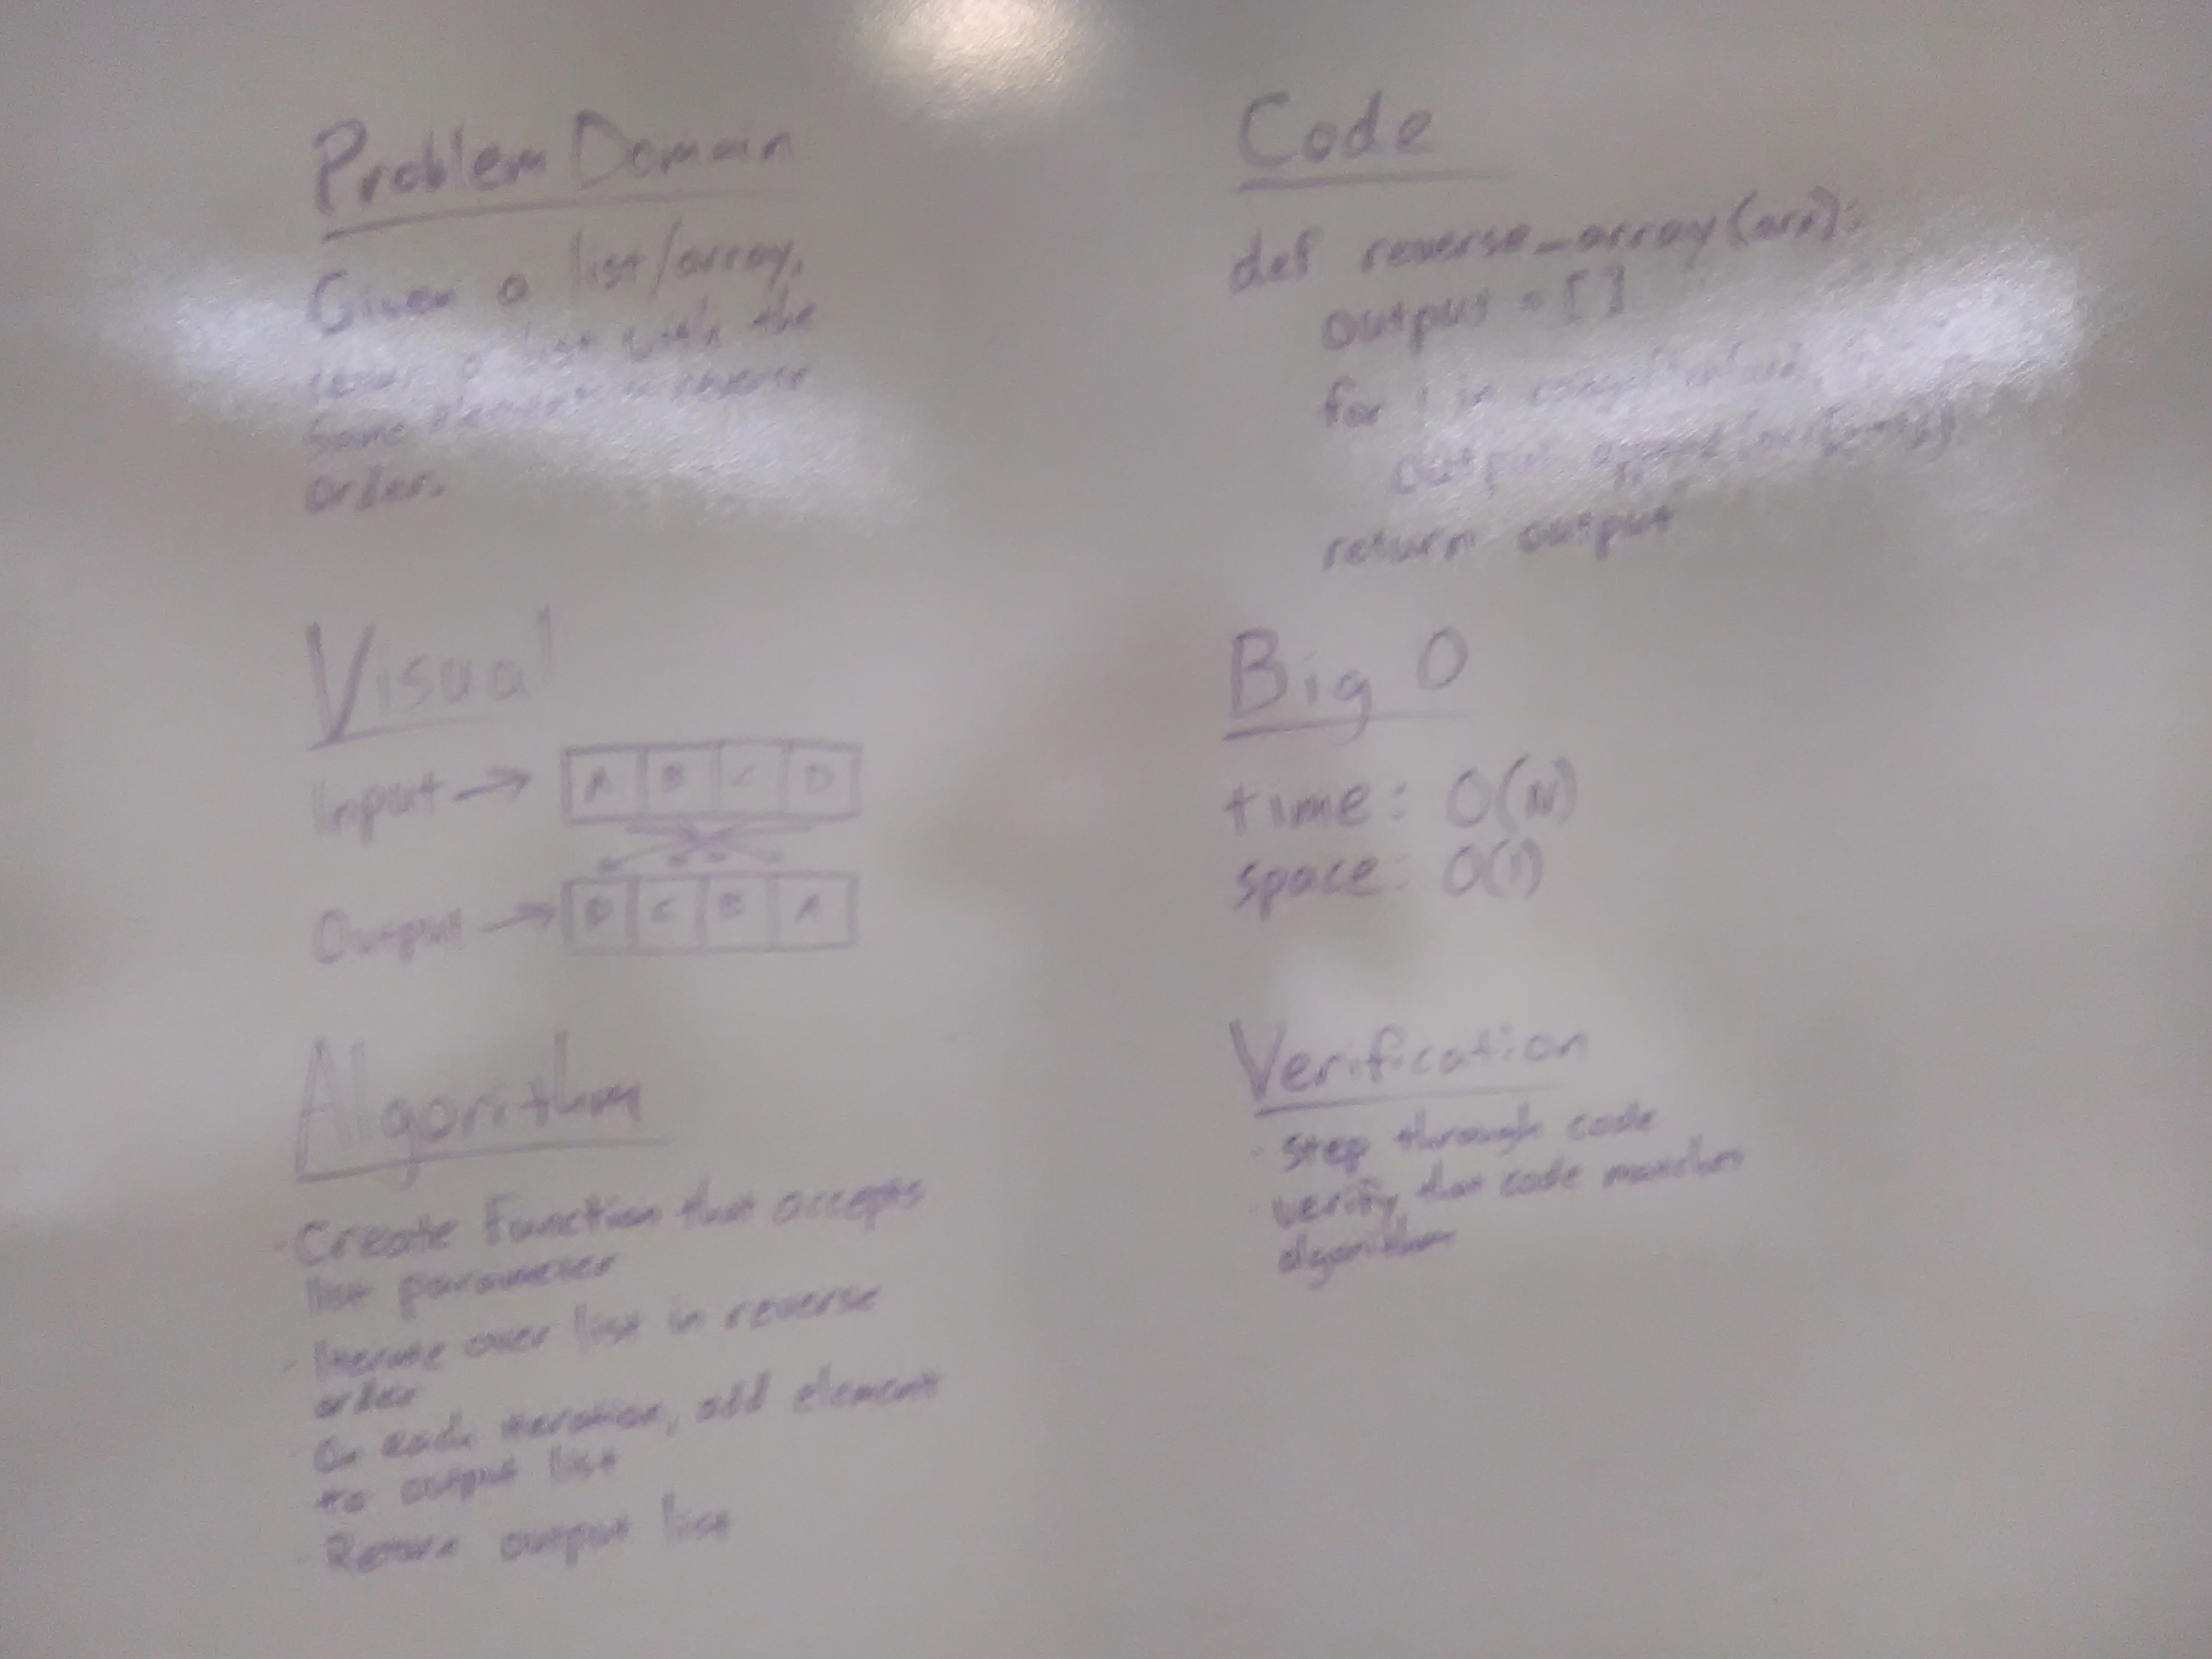 Problem Domain
Given a list/array,
a list with the
same in reverse
order.
Visual
Input →
A B C D
Output →
D C B A
Algorithm
- Create Function that accepts
list parameter
- Iterate over list in reverse
order
- On each iteration, add element
to output list
- Return output list
Code
def reverse_array(arr):
output = []
for i in
output append
return output
Big O
time: O(N)
space: O(1)
Verification
- step through code
- verify that code matches
algorithm